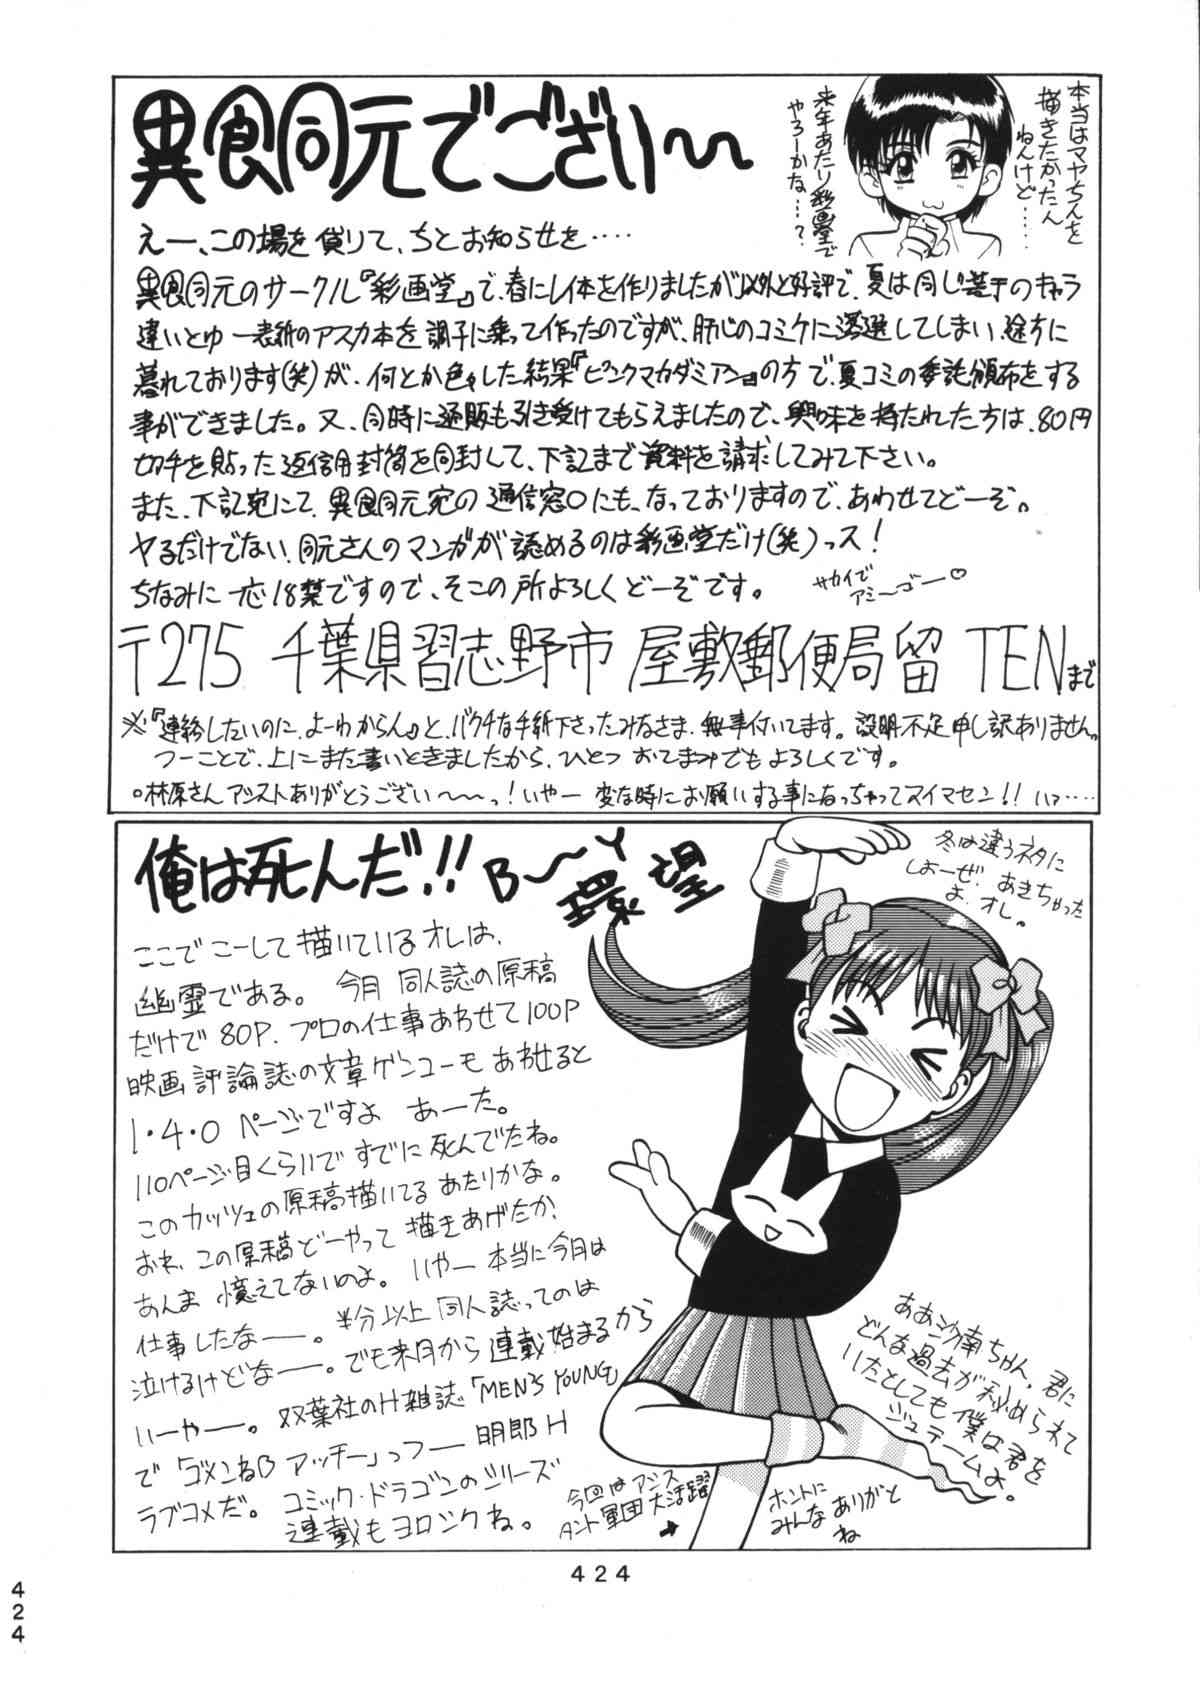 異食同元でござい〜
本当はマヤちんを
描きたかったん
ねんけど……
来年あたり彩画堂で
やろーかな……?
えー、この場を貸りて、ちとお知らせを……
異食同元のサークル『彩画堂』で、春にレイ本を作りましたが以外と好評で、夏は同じ苦手のキャラ
違いとゆー表紙のアスカ本を調子に乗って作ったのですが、肝心のコミケに落選してしまい、途方に
暮れております(笑)が、何とか色々した結果『ピンクマカダミアン』の方で、夏コミの委託頒布をする
事ができました。又、同時に通販も引き受けてもらえましたので、興味を持たれた方は、80円
切手を貼った返信用封筒を同封して、下記まで資料を請求してみて下さい。
また、下記宛にて、異食同元宛の通信窓口にも、なっておりますので、あわせてどーぞ。
ヤるだけでない、同元さんのマンガが読めるのは彩画堂だけ(笑)っス!
ちなみに一応18禁ですので、そこの所よろしくどーぞです。
サカイで
アミ〜ゴー♡
〒275 千葉県習志野市 屋敷郵便局留 TENまで
※『連絡したいのに、よーわからん』と、バクチな手紙下さったみなさま、無事付いてます。説明不足申し訳ありませんっ
つーことで、上にまた書いときましたから、ひとつ おてまみでもよろしくです。
○林原さんアシストありがとうござい〜〜っ!いやー 変な時にお願いする事になっちゃってスイマセン!! いっ……
俺は死んだ!! B〜Y 環望
冬は違うネタに
しよーぜ、あきちゃった
よ、オレ。
ここでこーして描いているオレは、
幽霊である。 今月 同人誌の原稿
だけで80P. プロの仕事あわせて100P
映画評論誌の文章ゲンコーもあわせると
1・4・0 ページですよ あーた。
110ページ目くらいですでに死んでたね。
このカッツェの原稿描いてるあたりかな。
おれ、この原稿どーやって描きあげたか、
あんま憶えてないのよ。いやー本当に今月は
仕事したなー。半分以上同人誌ってのは
泣けるけどなー。でも来月から連載始まるから
いーやー。双葉社のH雑誌「MEN'S YOUNG」
で「ゴメンねB アッチー」っつー 明郎H
ラブコメだ。 コミック・ドラゴンのシリーズ
連載もヨロシクね。
ああ沙南ちゃん、君に
どんな過去が秘められて
いたとしても僕は君を
ジュテームよ。
今回はアシス
タント軍団大活躍
→
ホントに
みんなありがと
ね
424
424